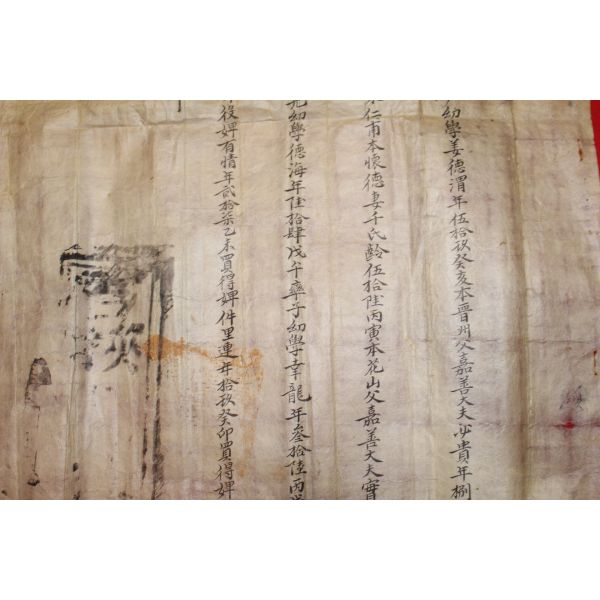 幼學姜德渭年伍拾玖癸亥本晋州父嘉善大夫必貴年捌
仁甫本懷德妻千氏齡伍拾陸丙寅本花山父嘉善大夫實
幼學德海年陸拾肆戊午率子幼學幸龍年叄拾陸丙
役婢有情年貳拾柒乙未買得婢件里連年拾玖癸卯買得婢